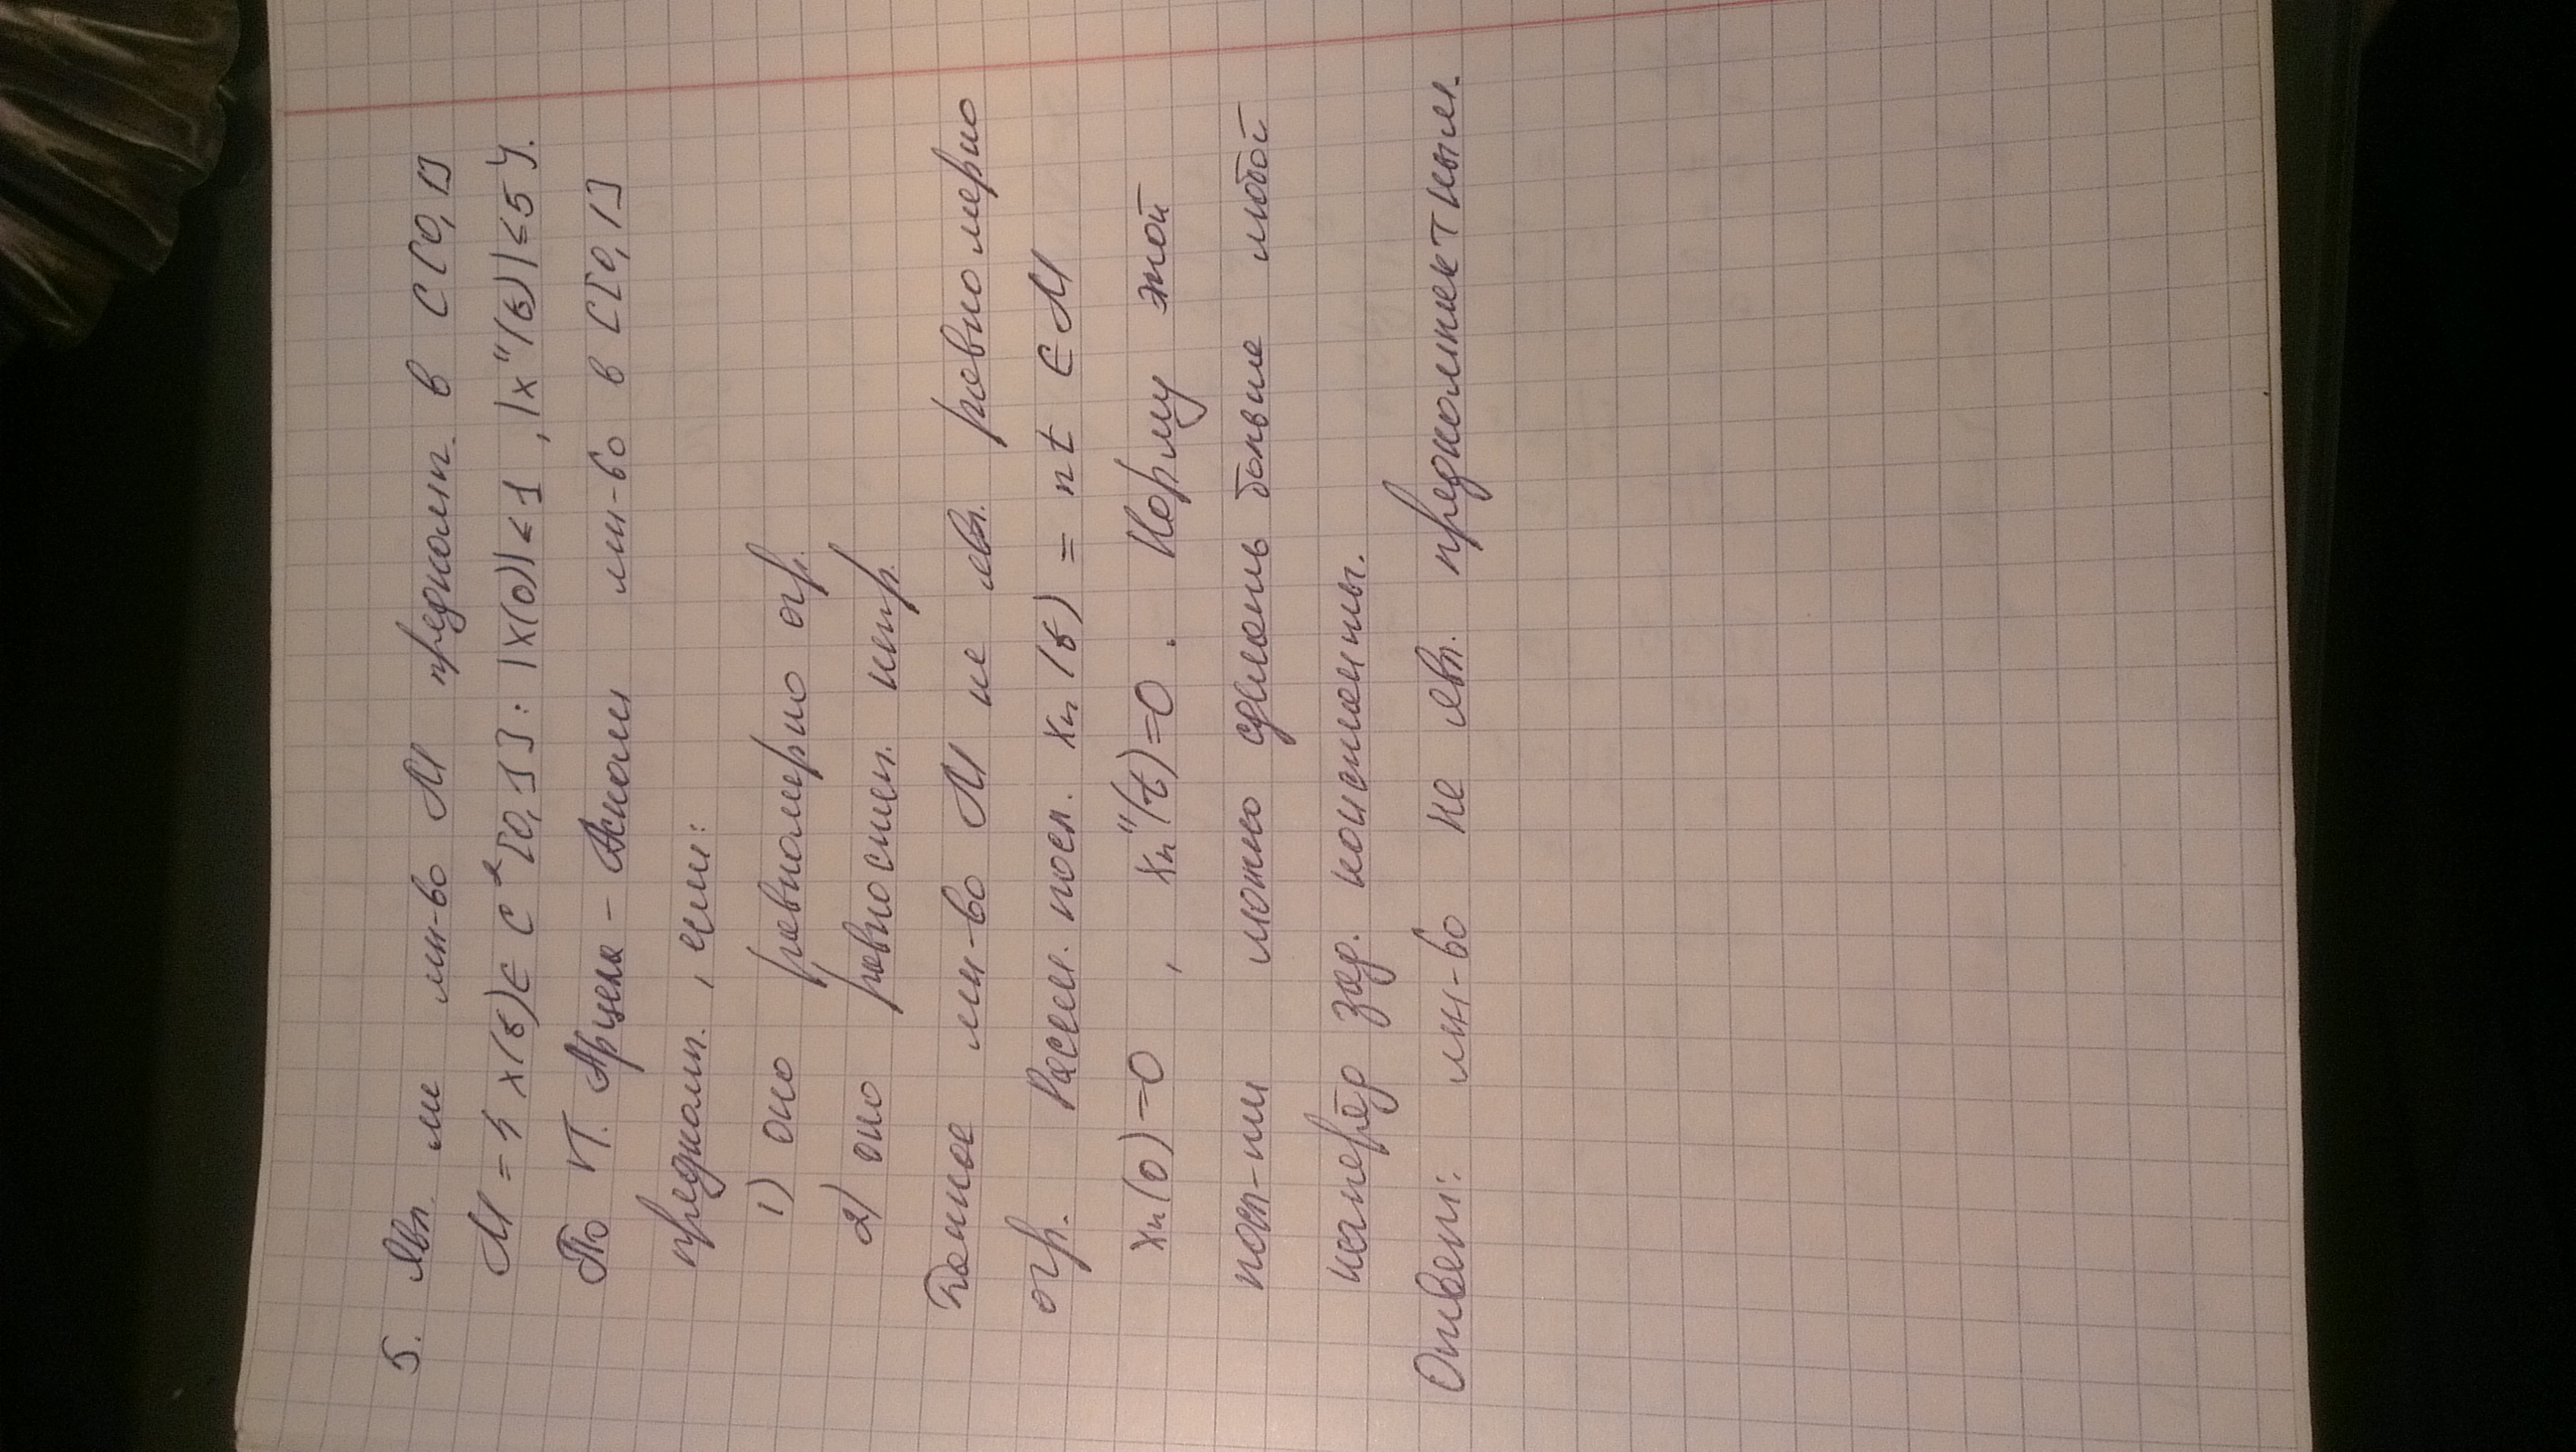 5. Явл. ли мн-во M предкомп. в C[0,1]
M = { x(t) ∈ C²[0,1] : |x(0)| ≤ 1 , |x''(t)| ≤ 5 }.
По т. Арцела - Асколи мн-во в C[0,1]
предкомп., если:
1) оно равномерно огр.
2) оно равностеп. непр.
Данное мн-во M не явл. равномерно
огр. Рассм. посл. xₙ(t) = nt ∈ M
xₙ(0) = 0 , xₙ''(t) = 0 . Норму этой
посл-ти можно сделать больше любой
наперёд зад. константы.
Ответ: мн-во не явл. предкомпактным.